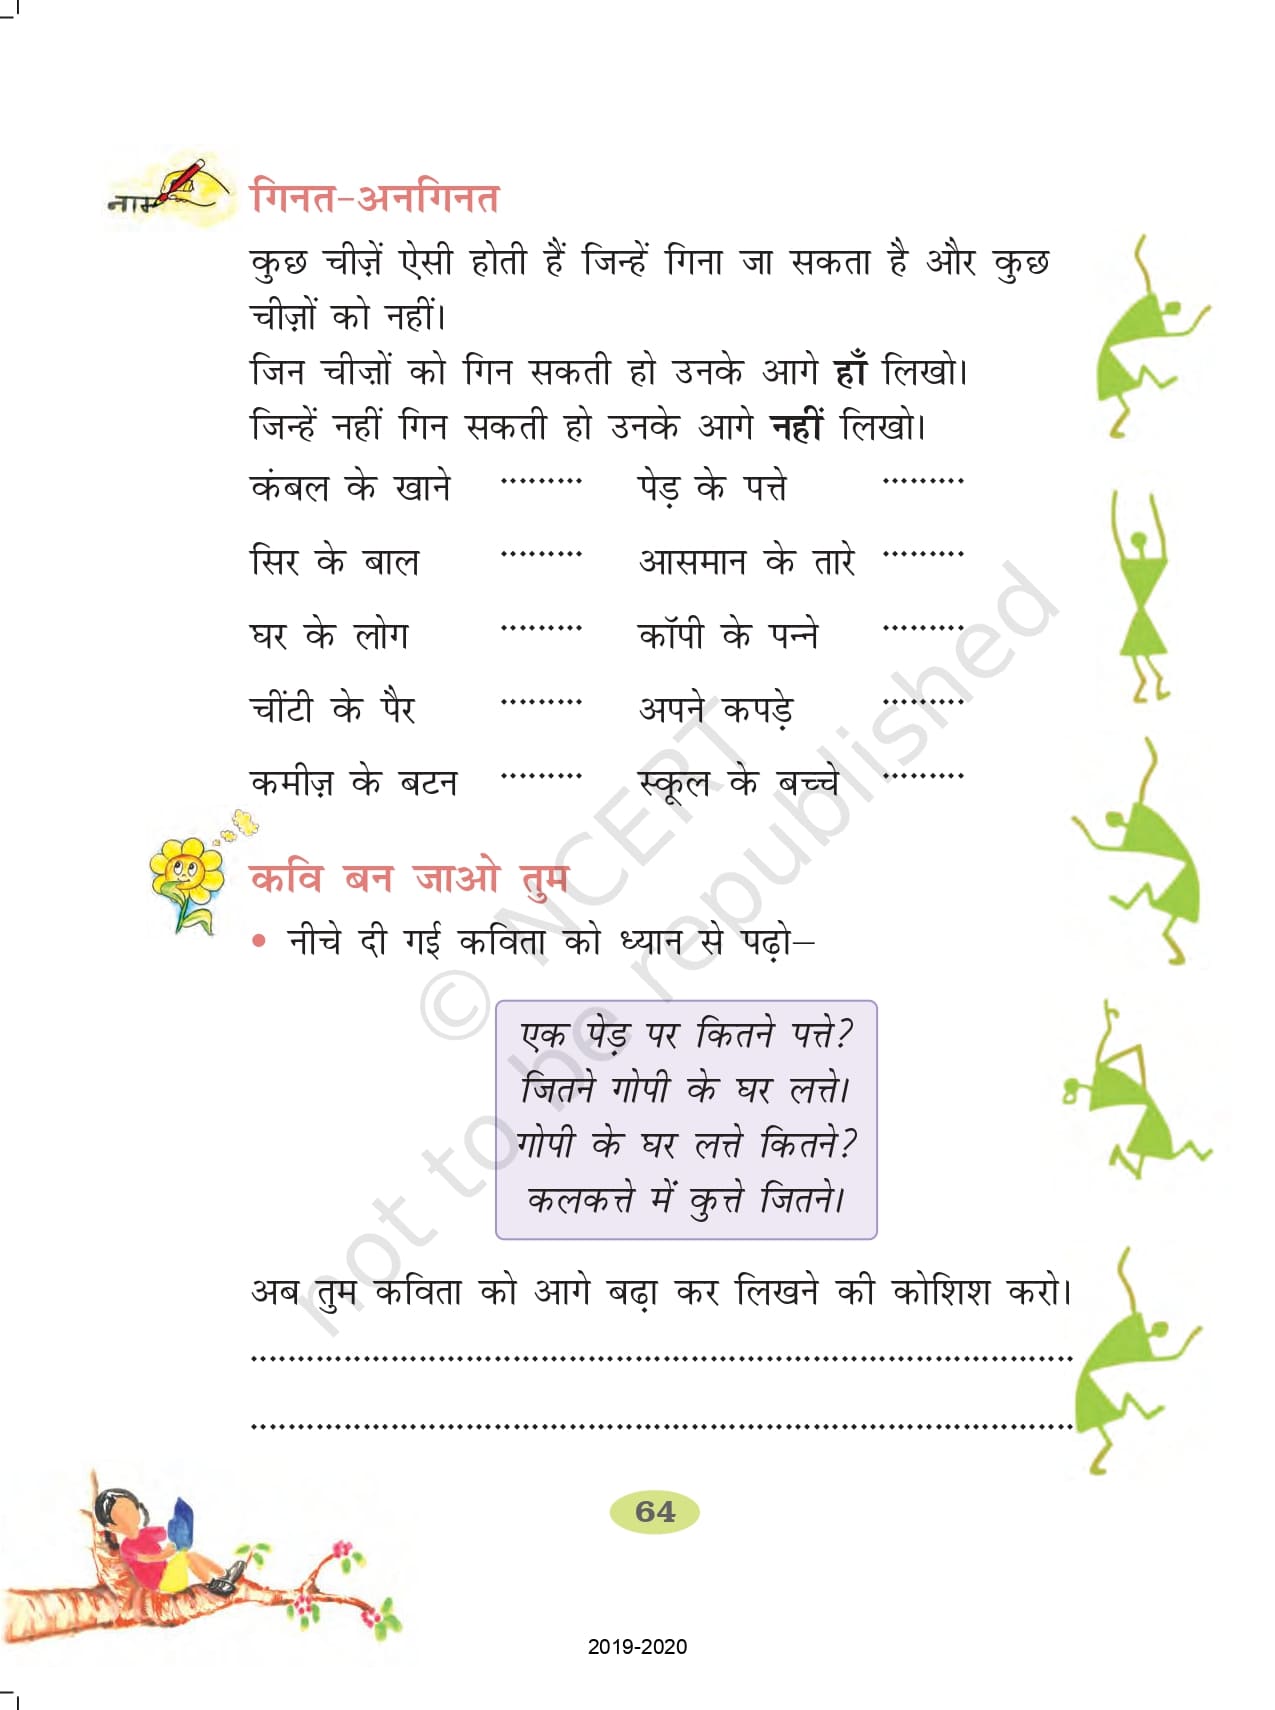 नाम
गिनत-अनगिनत
कुछ चीज़ें ऐसी होती हैं जिन्हें गिना जा सकता है और कुछ
चीज़ों को नहीं।
जिन चीज़ों को गिन सकती हो उनके आगे हाँ लिखो।
जिन्हें नहीं गिन सकती हो उनके आगे नहीं लिखो।
कंबल के खाने ......... पेड़ के पत्ते .........
सिर के बाल ......... आसमान के तारे .........
घर के लोग ......... कॉपी के पन्ने .........
चींटी के पैर ......... अपने कपड़े .........
कमीज़ के बटन ......... स्कूल के बच्चे .........
कवि बन जाओ तुम
• नीचे दी गई कविता को ध्यान से पढ़ो–
एक पेड़ पर कितने पत्ते?
जितने गोपी के घर लत्ते।
गोपी के घर लत्ते कितने?
कलकत्ते में कुत्ते जितने।
अब तुम कविता को आगे बढ़ा कर लिखने की कोशिश करो।
64
2019-2020
© NCERT
not to be republished